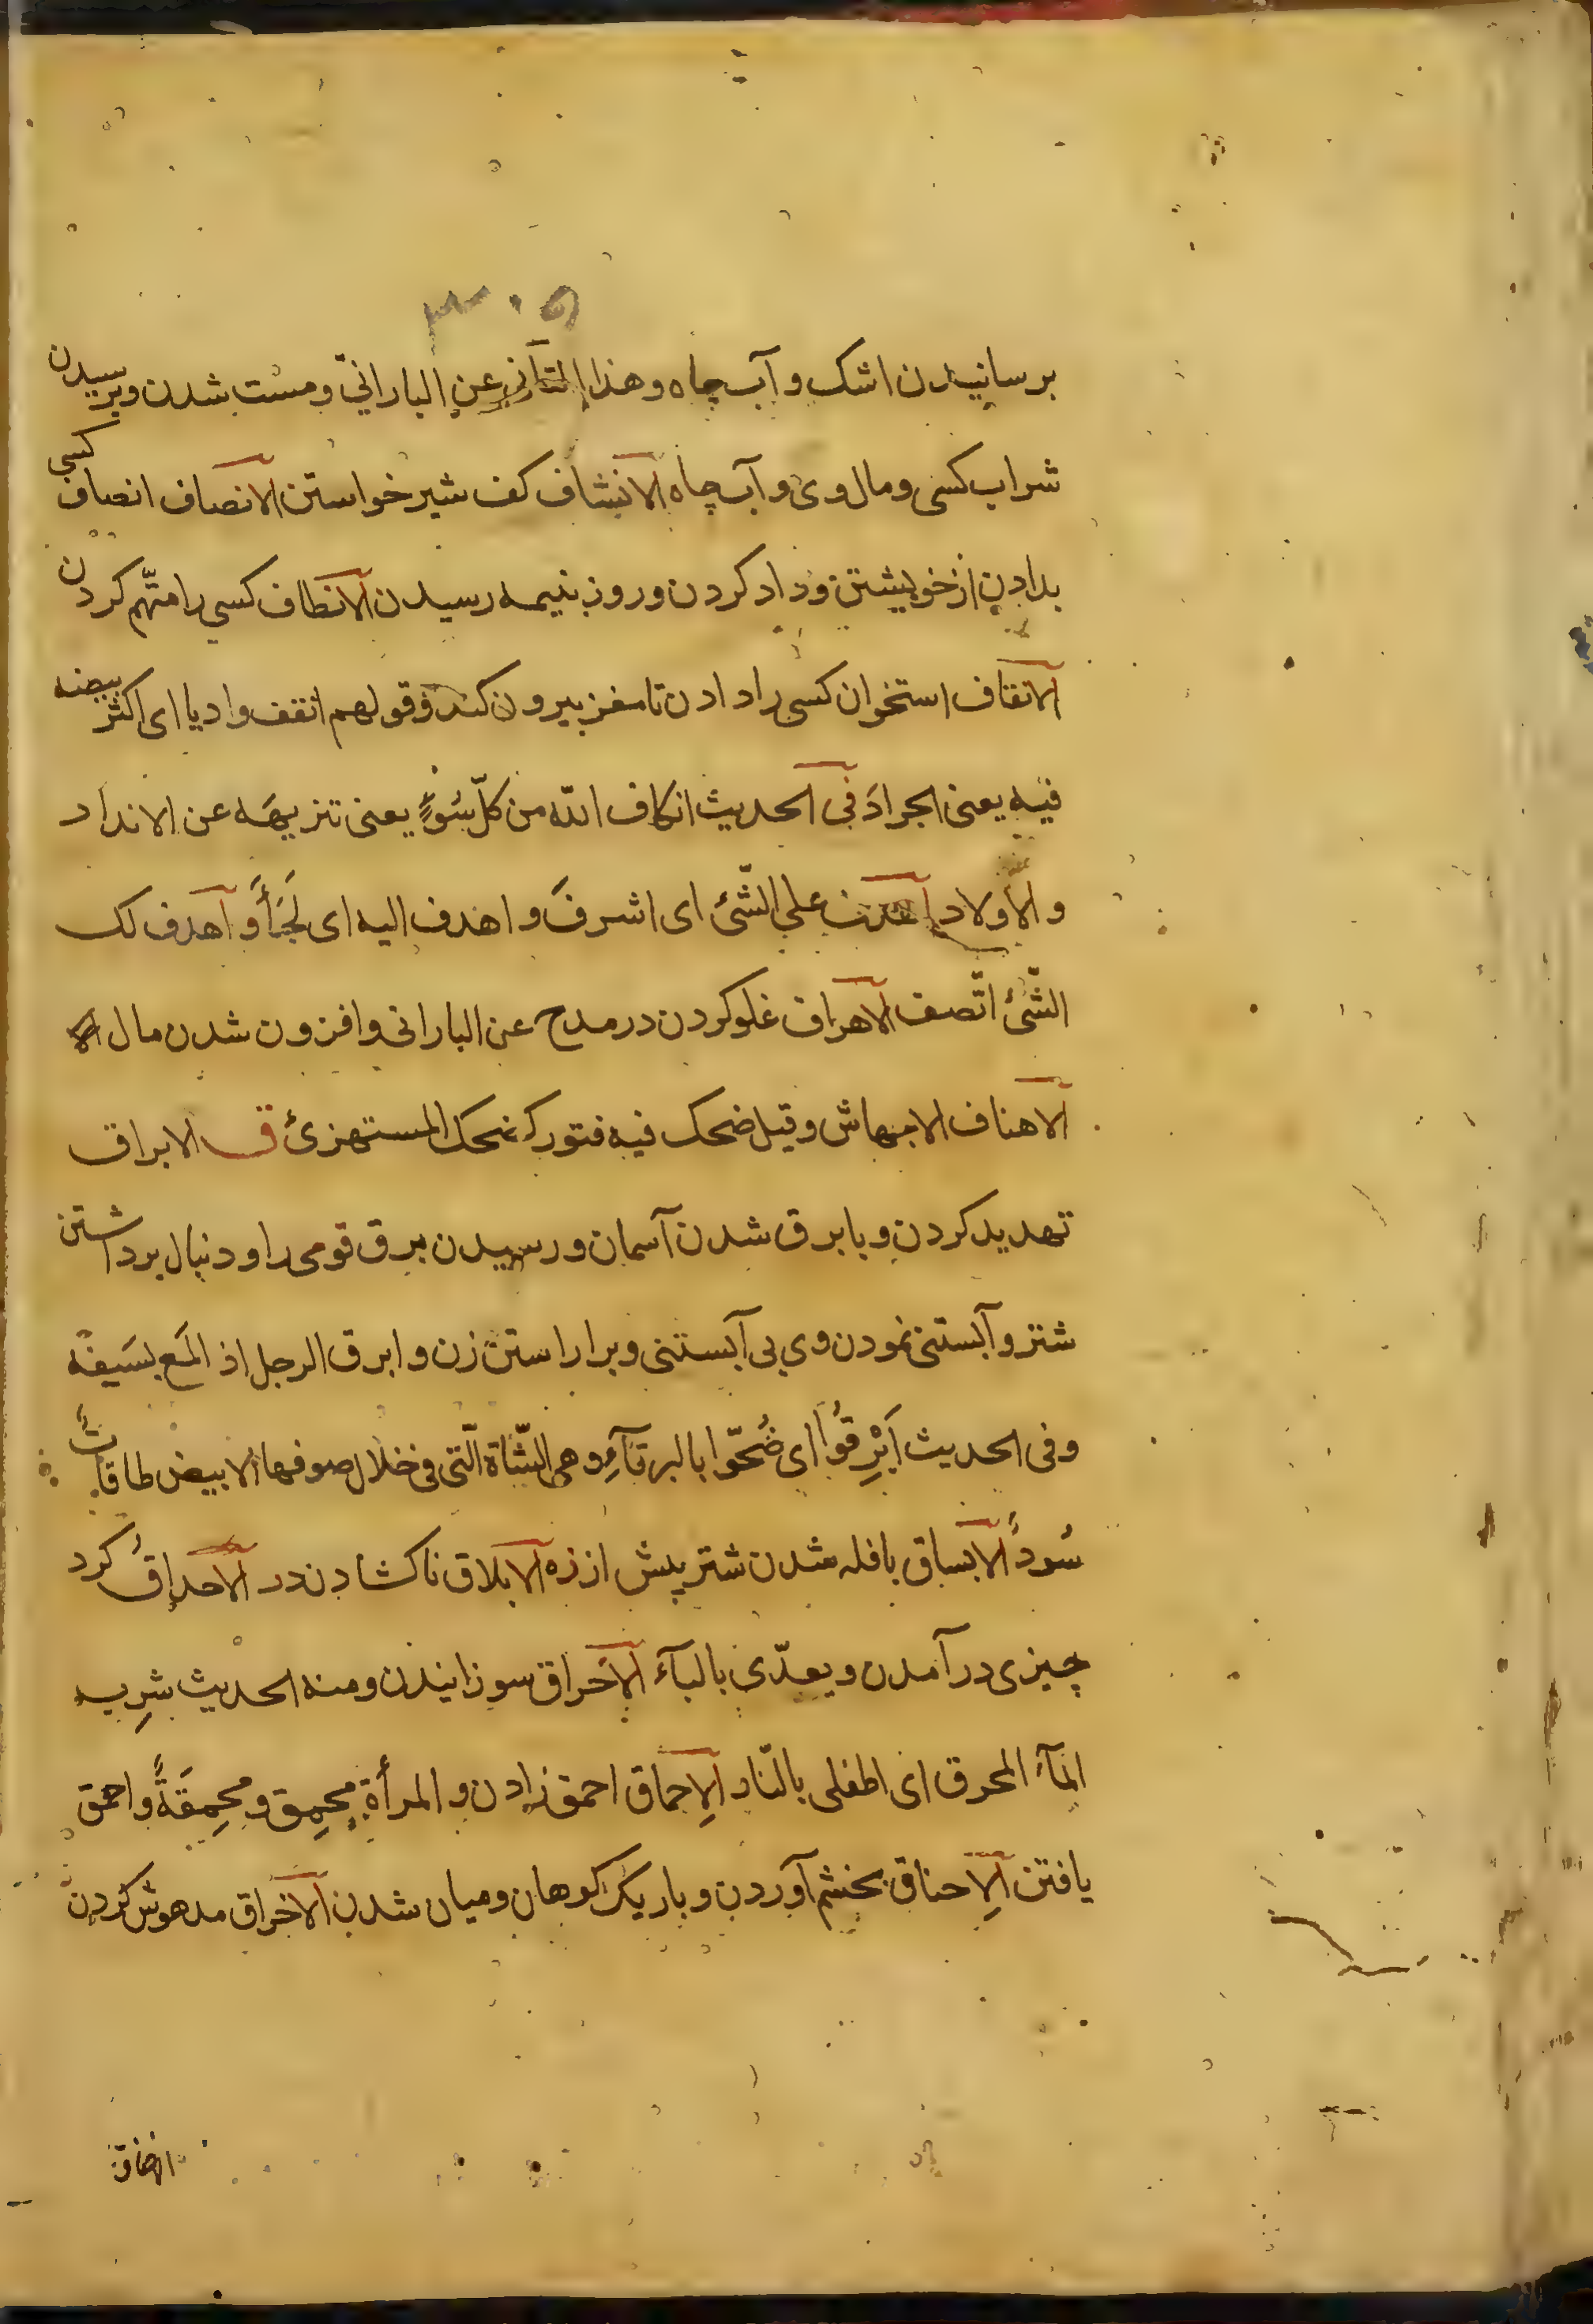 ۳۰۵
برسانیدن اشک و آب چاه وهذا الثانی عن البارانیّ ومست شدن وبرسیدن
شراب کسی ومال وی و آب چاه الانشاف کف شیر خواستن الانصاف انصاف کسی
بدادن از خویشتن وداد کردن وروز بنیمه رسیدن الانطاف کسی را متّهم کردن
الانقاف استخوان کسی را دادن تا مغز بیرون کند وقولهم انقف وادیا ای اکثر بیضه
فیه یعنی الجراد فی الحدیث انکاف الله من کلّ سُوءٍ یعنی تنزیهَه عن الانداد
والاولاد اهدف علی الشّئ ای اشرفَ و اهدف الیه ای لَجَأَ و اهدف لک
الشّئ اتّصف الاهراف غلو کردن در مدح عن البارانی وافزون شدن مال
الاهناف الابهاش وقیل ضحک فیه فتور کضحک المستهزئ ق الابراق
تهدید کردن وبا برق شدن آسمان ورسیدن برق قومی را ودنبال برداشتن
شتر وآبستنی نمودن وی بی آبستنی وبراراستن زن وابرق الرجل اذ المَع بسَیفه
وفی الحدیث اَبْرِقُوا ای ضُحّوا بالبرقآءِ وهی الشّاة الّتی فی خلال صوفها الابیض طاقاتٌ
سُودٌ الابساق بافله شدن شتر پیش از زه الابلاق ناکشادن در الاحداق کرد
چیزی درآمدن ویعدّی بالبآء الاَحراق سوزانیدن ومنه الحدیث شرِب
المآءَ المحرق ای اطغلی بالنّار الاِحماق احمق زادن والمرأة محِمق ومحِمقَةٌ و احمق
یافتن الاِحناق بخشم آوردن وباریک کوهان ومیان شدن الاخراق مدهوش کردن